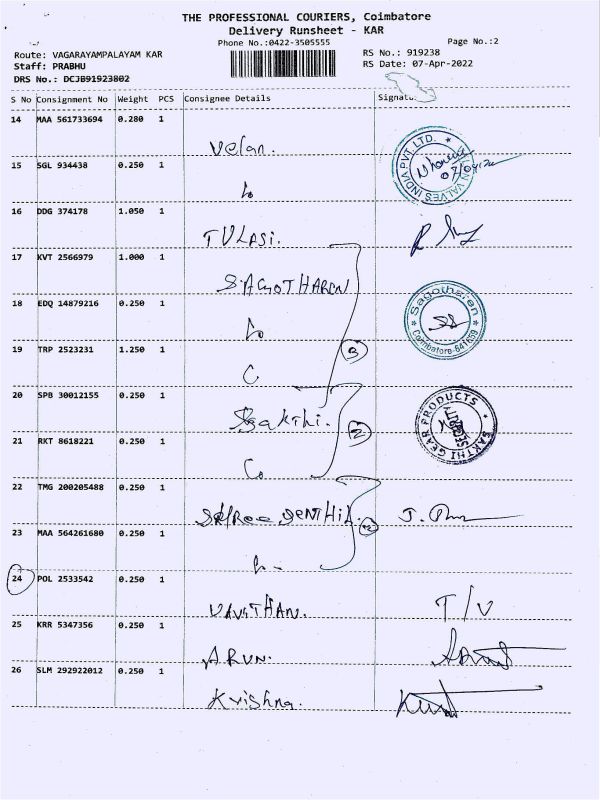 THE PROFESSIONAL COURIERS, Coimbatore
Delivery Runsheet - KAR
Phone No.:0422-3505555
Page No.:2
Route: VAGARAYAMPALAYAM KAR
RS No.: 919238
Staff: PRABHU
RS Date: 07-Apr-2022
DRS No.: DCJB91923802
S No Consignment No Weight PCS Consignee Details
14 MAA 561733694 0.280 1
Velan.
INDIA PVT. LTD.
15 SGL 934438 0.250 1
16 DDG 374178 1.050 1
TULASI.
17 KVT 2566979 1.000 1
SAGOTHAREN
18 EDQ 14879216 0.250 1
Sagotharen
Coimbatore-641659
19 TRP 2523231 1.250 1
3
20 SPB 30012155 0.250 1
Sakthi.
2
SAKTHI GEAR PRODUCTS
21 RKT 8618221 0.250 1
22 TMG 200205488 0.250 1
SENTHIL
2
23 MAA 564261680 0.250 1
24 POL 2533542 0.250 1
T/V
25 KRR 5347356 0.250 1
ARUN.
26 SLM 292922012 0.250 1
Krishna.